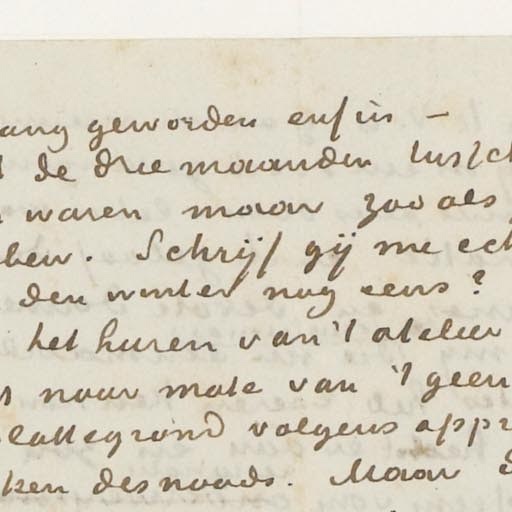 ang geworden enfin –
de drie maanden tussch
waren maar zooals
ben. Schrijf gij me ech
den winter nog eens?
het huren van 't atelier
naar mate van 't geen
plattegrond volgens appr
ken desnoods. Maar